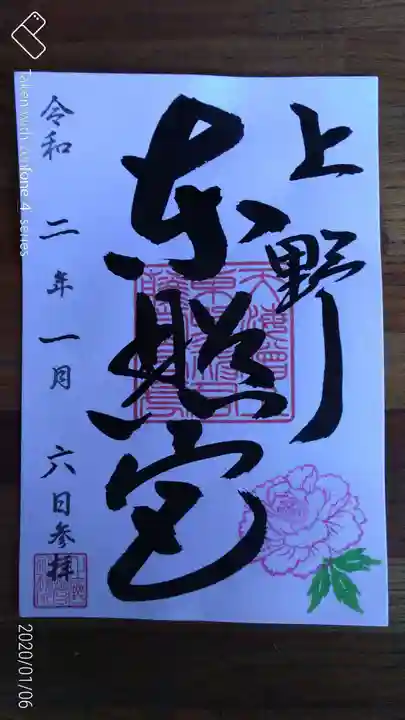 上野
東照宮
令和 二年 一月 六日参拝
Taken with Zenfone 4 series
2020/01/06